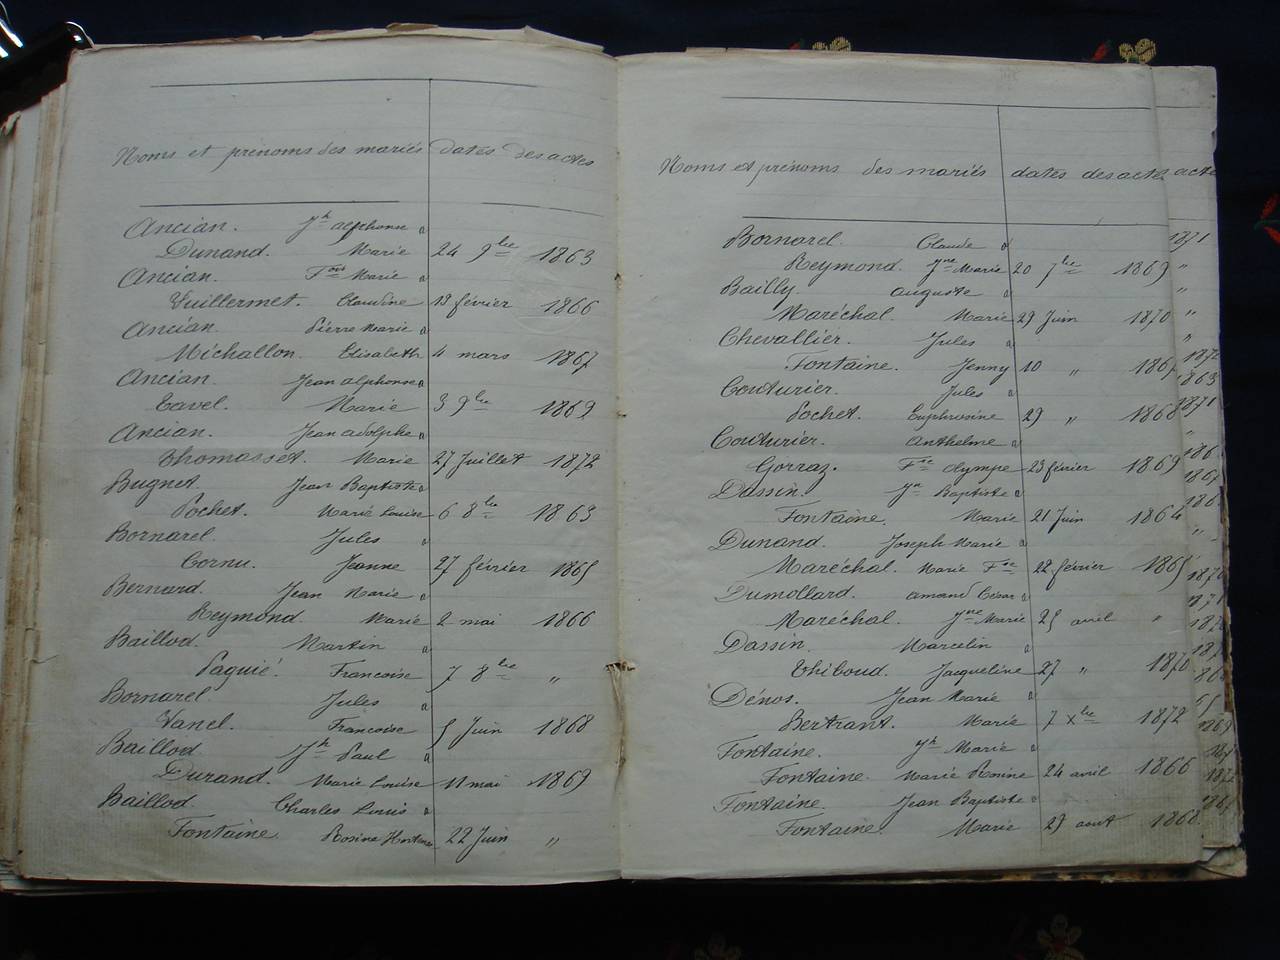 Noms et prénoms des mariés dates des actes
Ancian. Jh alphonse a
Dunand. Marie 24 9bre 1863
Ancian. Fois Marie a
Vuillermet. Claudine 13 février 1866
Ancian. Pierre Marie a
Michallon. Elisabeth 4 mars 1867
Ancian. Jean alphonse a
Tavel. Marie 3 9bre 1869
Ancian. Jean adolphe a
Thomasset. Marie 27 Juillet 1872
Bugnet. Jean Baptiste a
Pochet. Marie Louise 6 8bre 1863
Bornarel. Jules a
Cornu. Jeanne 27 février 1865
Bernard. Jean Marie a
Reymond. Marie 2 mai 1866
Baillod. Martin a
Paquié. Francoise 7 8bre "
Bornarel Jules a
Vanel. Francoise 5 Juin 1868
Baillod Jh Paul a
Durand. Marie Louise 11 mai 1869
Baillod Charles Louis a
Fontaine Rosine 22 Juin "
Noms et prénoms des mariés dates des actes acte
Bornarel. Claude a 1871
Reymond. Jne Marie 20 7bre 1869 "
Bailly. auguste a "
Maréchal. Marie 29 Juin 1870 "
Chevallier. Jules a "
Fontaine. Jenny 10 " 1867 1872
Couturier. Jules a 1863
Pochet. Euphrosine 29 " 1868 1871
Couturier. anthelme a "
Gorraz. Fse olympe 23 février 1869
Dassin. Jn Baptiste a
Fontaine. Marie 21 Juin 1864
Dunand. Joseph Marie a "
Maréchal. Marie Fse 22 février 1865
Dumollard. amand César a
Maréchal. Jne Marie 25 avril "
Dassin. Marcelin a
Thiboud. Jacqueline 27 " 1870
Dénos. Jean Marie a
Bertrant. Marie 7 Xbre 1872
Fontaine. Jh Marie a
Fontaine. Marie Rosine 24 avril 1866
Fontaine. Jean Baptiste a
Fontaine. Marie 27 aout 1868